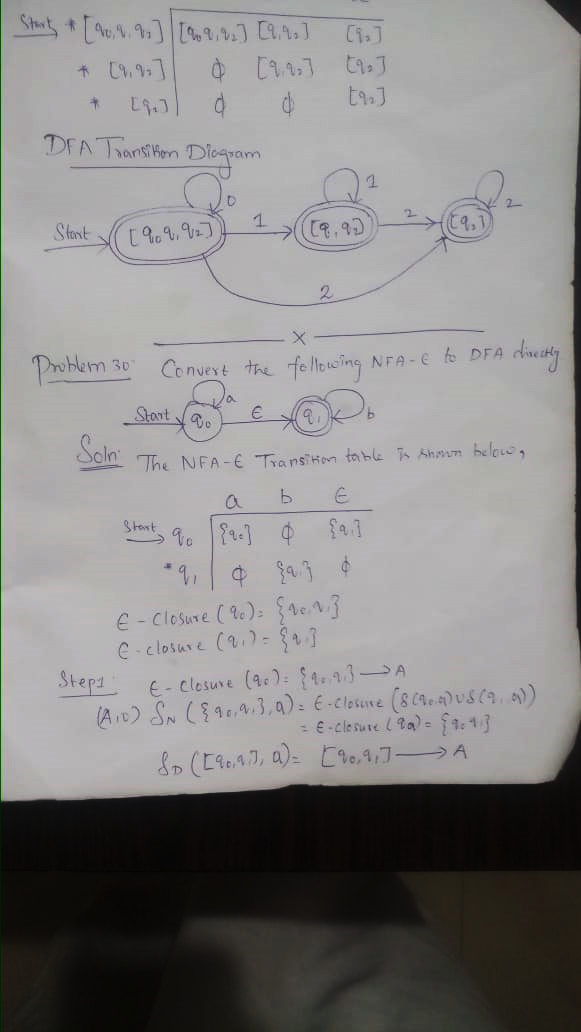 Start * [q₀,q₁q₂] [q₀q₁q₂] [q₁q₂] [q₂]
* [q₁q₂] ϕ [q₁q₂] [q₂]
* [q₂] ϕ ϕ [q₂]
DFA Transition Diagram
0 1 2
Start [q₀q₁q₂] 1 [q₁q₂] 2 [q₂]
2
X
Problem 30: Convert the following NFA-ϵ to DFA directly
a b
Start q₀ ϵ q₁
Soln: The NFA-ϵ Transition table is shown below,
a b ϵ
Start q₀ {q₀} ϕ {q₁}
*q₁ ϕ {q₁} ϕ
ϵ-closure (q₀) = {q₀,q₁}
ϵ-closure (q₁) = {q₁}
Step1: ϵ-closure (q₀) = {q₀,q₁} → A
(A,0) δN ({q₀,q₁},a) = ϵ-closure (δ(q₀,a) ∪ δ(q₁,a))
= ϵ-closure (q₀) = {q₀q₁}
δD ([q₀,q₁], a) = [q₀,q₁] → A